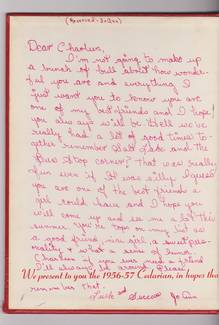 (Reserved - JoAnn)
Dear Charlene,
I'm not going to make up
a bunch of bull about how wonder-
ful you are and everything I
just want you to know you are
one of my best friends and I hope
you always will be. Well we've
really had a lot of good times to-
gether remember Salt Lake and the
Bus Stop corner? That was really
of fun even if it was silly. I guess
you are one of the best friends a
girl could have and I hope you
will come up and see me a lot this
summer. You're tops on my list as
a good friend, nice girl a sweet pers-
onality, & what a sense of humor
Charlene if you ever need a friend
I'll always be around Please
We present to you the 1956-57 Catarian, in hopes tha
remember that.
Luck and Success Jo Ann